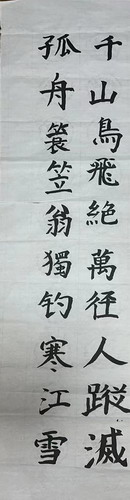 千山鳥飛絶萬徑人蹤滅
孤舟簑笠翁獨钓寒江雪